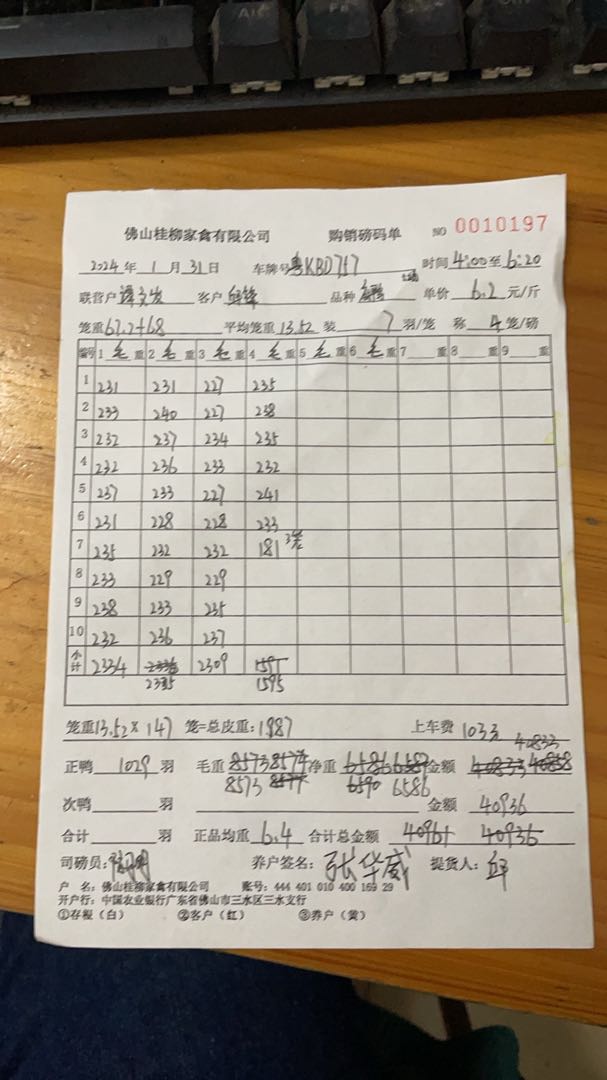 佛山桂柳家禽有限公司 购销磅码单 NO 0010197
2024年 1月31日 车牌号粤KBD757 时间 4:00至6:20
联营户 客户 品种 单价 6.2 元/斤
笼重67.2+68 平均笼重 13.52 装 7 羽/笼 称 4 笼/磅
编号 1 毛 重 2 毛 重 3 毛 重 4 毛 重 5 毛 重 6 毛 重 7 重 8 重 9 重
1 231 231 227 235
2 233 240 227 238
3 232 237 234 235
4 232 236 233 232
5 237 233 227 241
6 231 228 228 233
7 235 232 232 181 3笼
8 233 229 229
9 238 233 235
10 232 236 237
小计 2334 2336 2309 1591
2335 1595
笼重13.52×147 笼=总皮重:1987 上车费 1033
40833
正鸭 1029 羽 毛重 8573 8574 净重 6586 6587 金额 40833 40858
8573 8577 6590 6586
次鸭 羽 金额 40936
合计 羽 正品均重 6.4 合计总金额 40961 40936
司磅员: 养户签名: 张华威 提货人: 邱
户 名: 佛山桂柳家禽有限公司 账号: 444 401 010 400 169 29
开户行: 中国农业银行广东省佛山市三水区三水支行
①存根(白) ②客户(红) ③养户(黄)